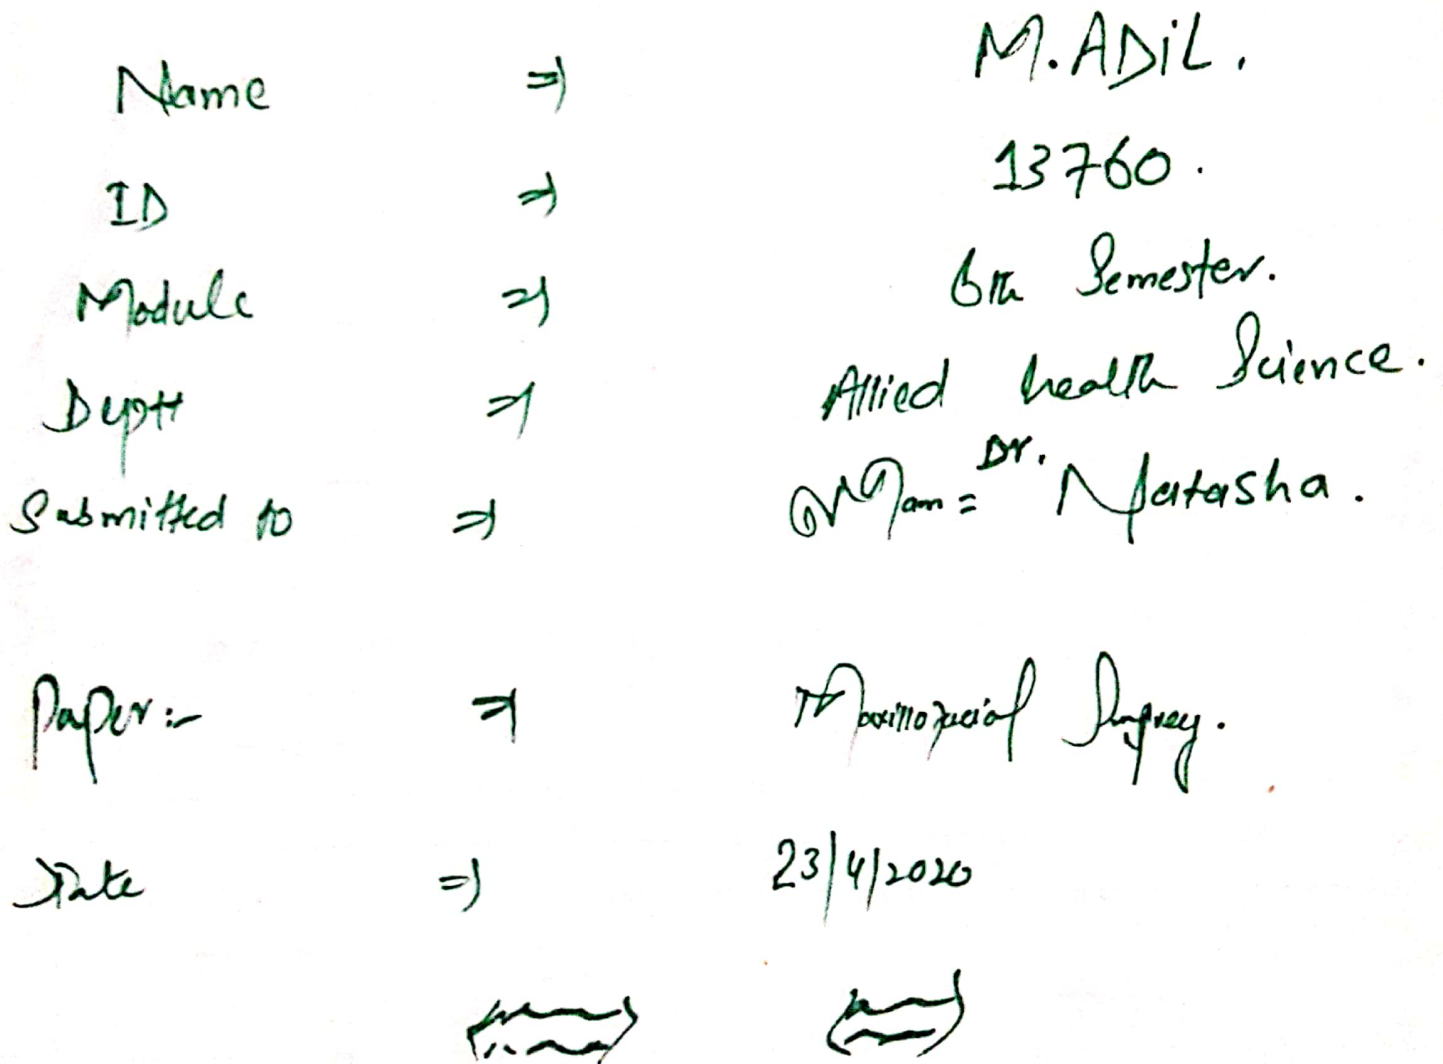 Name => M.ADiL.
ID => 13760.
Module => 6th Semester.
Deptt => Allied health Science.
Submitted to => Mam = Dr. Natasha.
Paper:- => Maxillofacial Surgrey.
Date => 23/4/2020